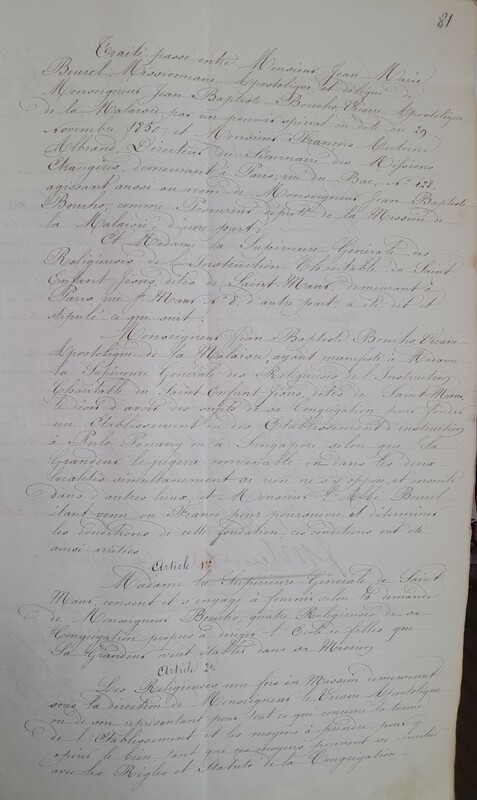 81
Traité passé entre Monsieur Jean Marie
Beurel Missionnaire Apostolique, et délégué de
Monseigneur Jean Baptiste Boucho, Vicaire Apostolique
de la Malaisie, par un pouvoir spécial en date du 29
Novembre 1850; et Monsieur François Antoine
Albrand, Directeur du Séminaire des Missions
Etrangères, demeurant à Paris, rue du Bac, No. 128.
agissant aussi au nom de Monseigneur Jean Baptiste
Boucho, comme Procureur député de la Mission de
la Malaisie, d'une part;
Et Madame la Supérieure Générale des
Religieuses de l'Instruction Charitable du Saint
Enfant Jésus, dites de Saint Maur, demeurant à
Paris, rue St. Maur No. 8, d'autre part, a été dit et
stipulé ce qui suit:
Monseigneur Jean Baptiste Boucho, Vicaire
Apostolique de la Malaisie, ayant manifesté à Madame
la Supérieure Générale des Religieuses de l'Instruction
Charitable du Saint Enfant Jésus, dites de Saint Maur,
le désir d'avoir des sujets de sa Congrégation pour fonder
un Etablissement ou des Etablissements d'instruction
à Pulo Penang ou à Singapore selon que Sa
Grandeur le jugera convenable, ou dans les deux
localités simultanément si rien ne s'y oppose et ensuite
dans d'autres lieux, et Monsieur l'Abbé Beurel
étant venu en France pour poursuivre et déterminer
les conditions de cette fondation, ces conditions ont été
ainsi arrêtées.
Article 1er
Madame la Supérieure Générale de Saint
Maur, consent et s'engage à fournir selon la demande
de Monseigneur Boucho, quatre Religieuses de sa
Congrégation propres à diriger l'Ecole de filles que
Sa Grandeur veut établir dans sa Mission.
Article 2e
Les Religieuses une fois en Mission demeurent
sous la direction de Monseigneur le Vicaire Apostolique
ou de son représentant pour tout ce qui concerne la tenue
de l'Etablissement et les moyens à prendre pour y
opérer le bien, tant que ces moyens pourront se concilier
avec les Règles et Statuts de la Congrégation.